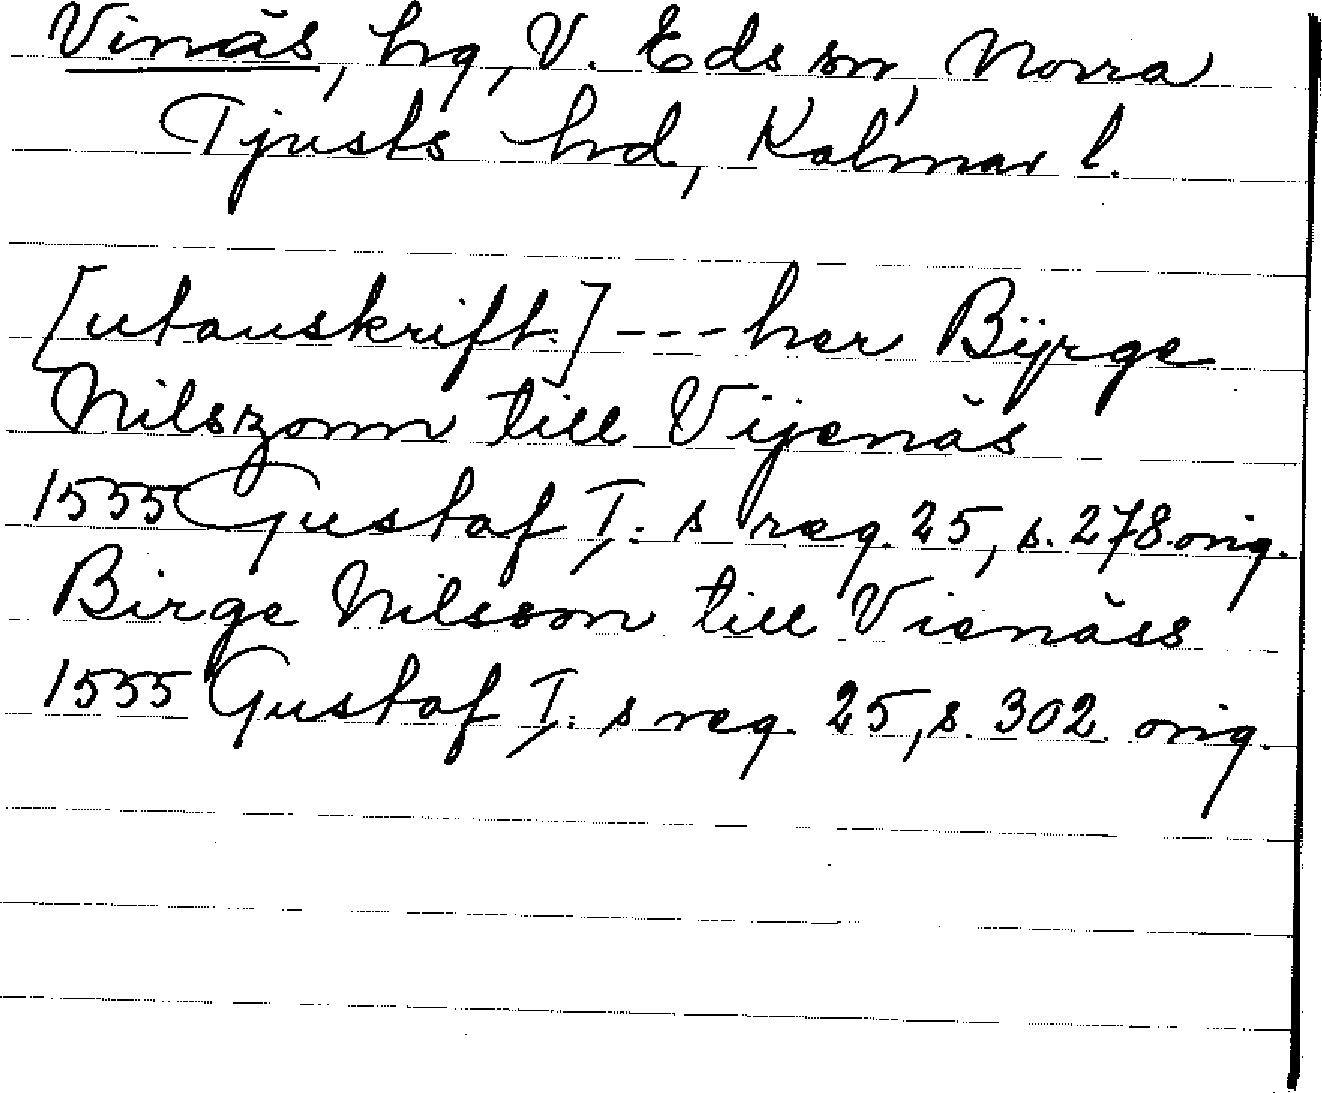 Vinäs, hg, V. Eds sn, Norra
Tjusts hd, Kalmar l.
[utanskrift:] --- her Bijrge
Nilszonn till Vijenäs
1555 Gustaf I: s reg. 25, s. 278 orig.
Birge Nilsson till Vienäss
1555 Gustaf I: s reg. 25, s. 302 orig.